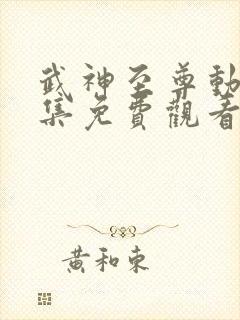 武神至尊動
集免費觀看
黃和東